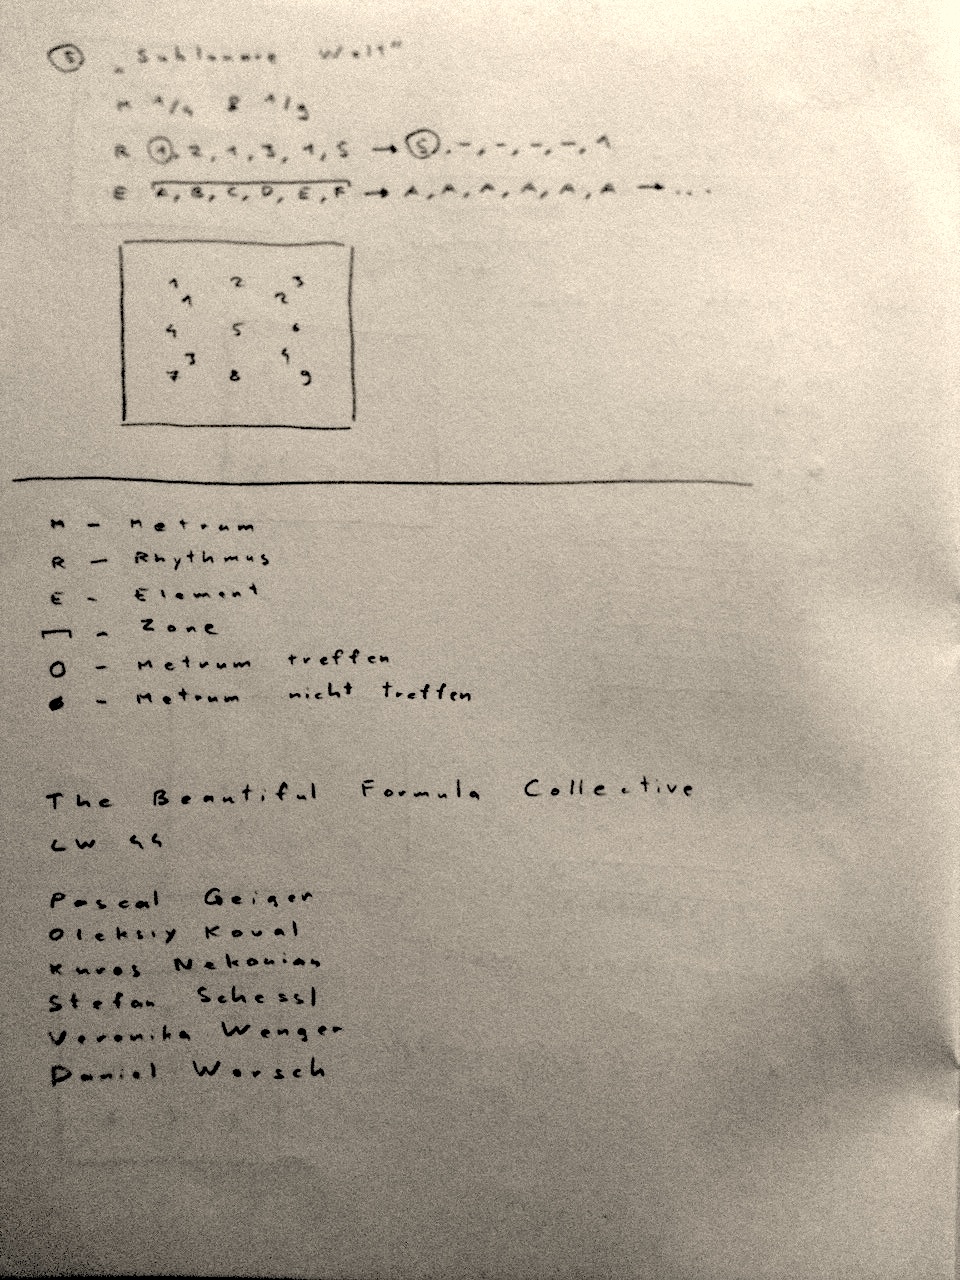 ⑤ „Sublunare Welt"
M 1/4 & 1/9
R ①, 2, 1, 3, 1, 5 → ⑤, -, -, -, -, 1
E A, B, C, D, E, F → A, A, A, A, A, A → ...
1 2 3
1 2
4 5 6
3 4
7 8 9
M - Metrum
R - Rhythmus
E - Element
- Zone
O - Metrum treffen
● - Metrum nicht treffen
The Beautiful Formula Collective
LW 44
Pascal Geiger
Oleksiy Koval
Kuros Nekouian
Stefan Schessl
Veronika Wenger
Daniel Worsch